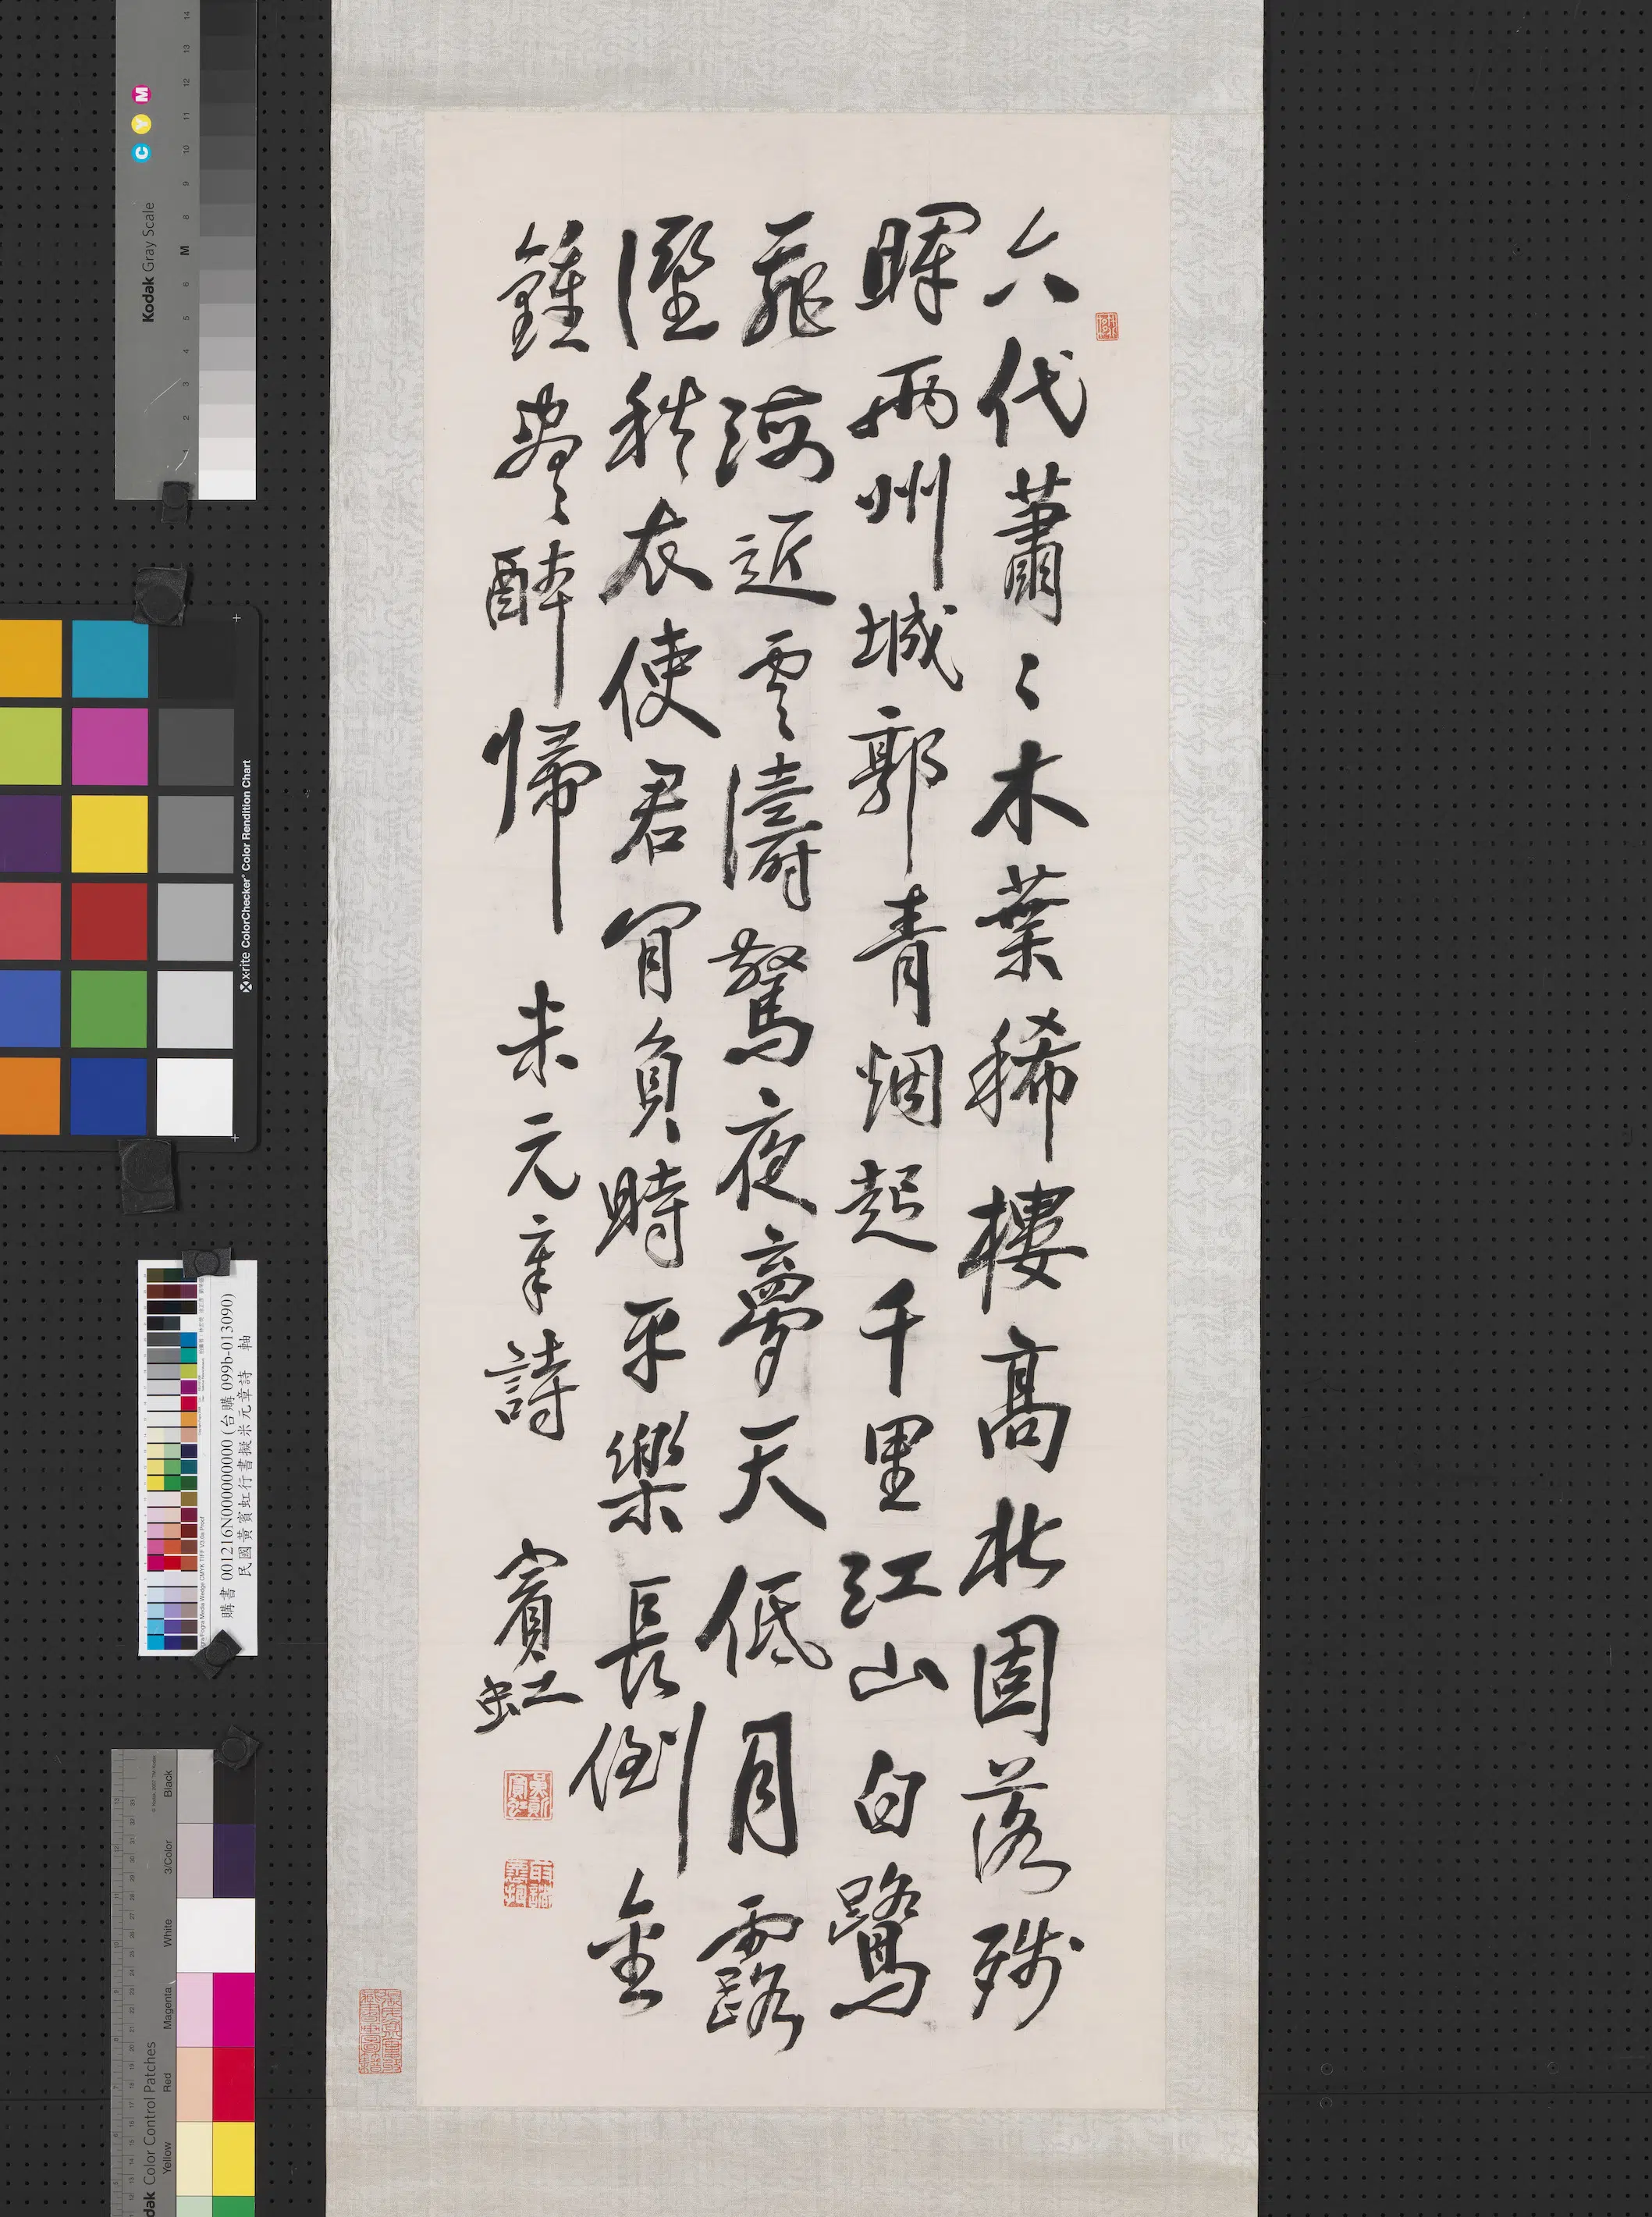 六代蕭〻木葉稀樓高北固落殘
暉兩州城郭青烟起千里江山白鷺
飛海近雲濤驚夜夢天低月露
溼秋衣使君肎負時平樂長倒金
鍾盡醉歸 米元章詩 賓虹
Kodak Gray Scale
C Y M
x-rite ColorChecker Color Rendition Chart
購書 001216N000000000 (台購 099b-013090)
民國黃賓虹行書擬米元章詩 軸
Kodak Color Control Patches
Black
3/Color
White
Magenta
Red
Yellow